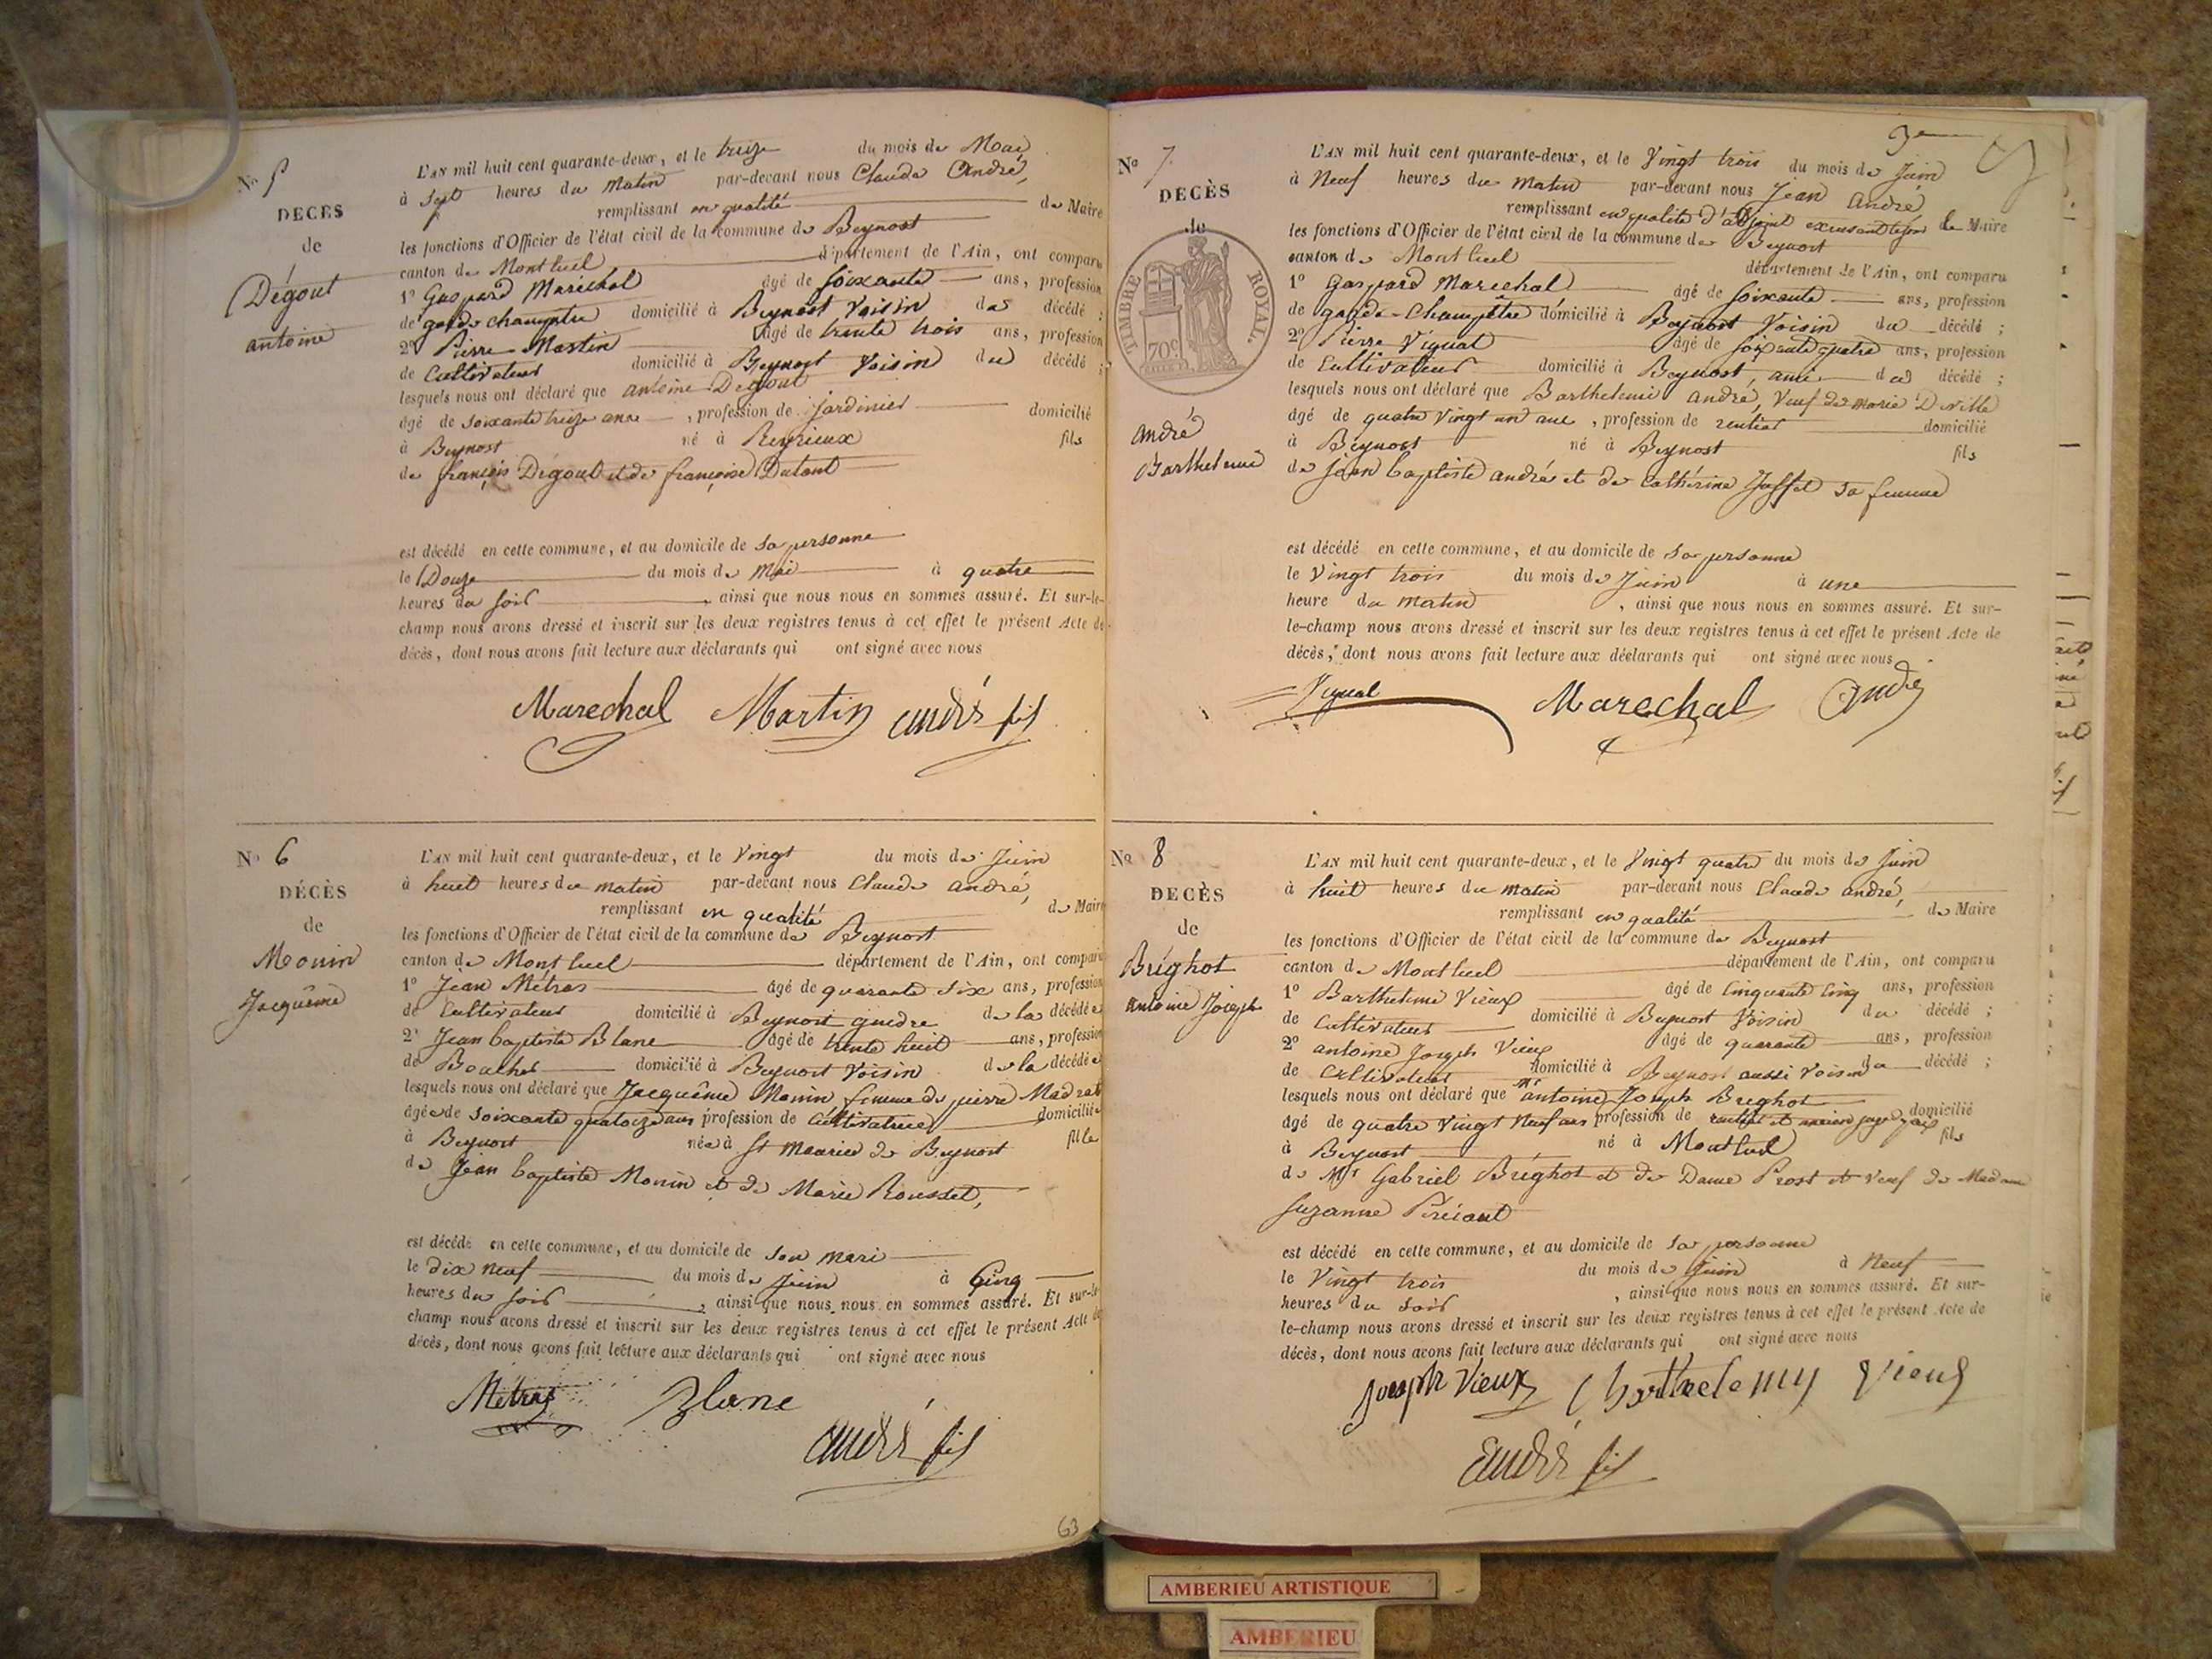 No 5
DECES
de
Dégout
antoine
L'AN mil huit cent quarante-deux, et le treize du mois de Mai
à Sept heures du Matin par-devant nous Claude André,
remplissant en qualité de Maire
les fonctions d'Officier de l'état civil de la commune de Beynost
canton de Montluel département de l'Ain, ont comparu
1º Gaspard Marechal âgé de soixante ans, profession
de garde champetre domicilié à Beynost Voisin du décédé ;
2º Pierre Martin âgé de trente trois ans, profession
de Cultivateur domicilié à Beynost Voisin du décédé ;
lesquels nous ont déclaré que antoine Dégout
âgé de soixante treize ans, profession de jardinier domicilié
à Beynost né à Reyrieux fils
de françois Dégout et de françoise Dutant
est décédé en cette commune, et au domicile de sa personne
le Douze du mois de Mai à quatre
heures du soir, ainsi que nous nous en sommes assuré. Et sur-le-
champ nous avons dressé et inscrit sur les deux registres tenus à cet effet le présent Acte de
décès, dont nous avons fait lecture aux déclarants qui ont signé avec nous
Marechal Martin andré fils
No 6
DÉCÈS
de
Monin
Jacquême
L'AN mil huit cent quarante-deux, et le Vingt du mois de Juin
à huit heures du matin par-devant nous Claude andré,
remplissant en qualité de Maire
les fonctions d'Officier de l'état civil de la commune de Beynost
canton de Montluel département de l'Ain, ont comparu
1º Jean Métras âgé de quarante six ans, profession
de Cultivateur domicilié à Beynost gendre de la décédée
2º Jean baptiste Blanc âgé de trente huit ans, profession
de Boucher domicilié à Beynost Voisin de la décédée
lesquels nous ont déclaré que Jacquême Monin femme de pierre Madrat
âgée de soixante quatorze ans profession de Cultivatrice domiciliée
à Beynost née à St Maurice de Beynost fille
de Jean baptiste Monin et de Marie Rousset,
est décédé en cette commune, et au domicile de son mari
le dix neuf du mois de Juin à Cinq
heures du soir, ainsi que nous nous en sommes assuré. Et sur-le-
champ nous avons dressé et inscrit sur les deux registres tenus à cet effet le présent Acte de
décès, dont nous avons fait lecture aux déclarants qui ont signé avec nous
Métras Blanc
andré fils
63
No 7
DECÈS
de
TIMBRE ROYAL.
70c
andré
Barthelemi
L'AN mil huit cent quarante-deux, et le Vingt trois du mois de Juin
à Neuf heures du matin par-devant nous Jean André
remplissant en qualité d'adjoint de Maire
les fonctions d'Officier de l'état civil de la commune de Beynost
canton de Montluel département de l'Ain, ont comparu
1º Gaspard Marechal âgé de soixante ans, profession
de garde-Champêtre domicilié à Beynost Voisin du décédé ;
2º Pierre Vignat âgé de soixante quatre ans, profession
de Cultivateur domicilié à Beynost, ami du décédé ;
lesquels nous ont déclaré que Barthelemi andré, Veuf de marie Deville
âgé de quatre Vingt un ans, profession de rentier domicilié
à Beynost né à Beynost fils
de jean baptiste andré et de Cathérine Joffet sa femme
est décédé en cette commune, et au domicile de sa personne
le Vingt trois du mois de Juin à une
heure du matin, ainsi que nous nous en sommes assuré. Et sur-
le-champ nous avons dressé et inscrit sur les deux registres tenus à cet effet le présent Acte de
décès, dont nous avons fait lecture aux déclarants qui ont signé avec nous
Vignat Marechal André
No 8
DECÈS
de
Bréghot
antoine Joseph
L'AN mil huit cent quarante-deux, et le Vingt quatre du mois de Juin
à huit heures du matin par-devant nous Claude andré,
remplissant en qualité de Maire
les fonctions d'Officier de l'état civil de la commune de Beynost
canton de Montluel département de l'Ain, ont comparu
1º Barthelemi Vieux âgé de Cinquante Cinq ans, profession
de Cultivateur domicilié à Beynost Voisin du décédé ;
2º antoine Joseph Vieux âgé de quarante ans, profession
de Cultivateur domicilié à Beynost aussi voisin du décédé ;
lesquels nous ont déclaré que Mr antoine Joseph Bréghot
âgé de quatre Vingt Neuf ans profession de rentier et ancien juge de paix domicilié
à Beynost né à Montluel fils
de Mr Gabriel Bréghot et de Dame Prost et veuf de Madame
Suzanne
est décédé en cette commune, et au domicile de sa personne
le Vingt trois du mois de Juin à Neuf
heures du soir, ainsi que nous nous en sommes assuré. Et sur-
le-champ nous avons dressé et inscrit sur les deux registres tenus à cet effet le présent Acte de
décès, dont nous avons fait lecture aux déclarants qui ont signé avec nous
Joseph Vieux Barthelemy Vieux
andré fils
AMBERIEU ARTISTIQUE
AMBERIEU